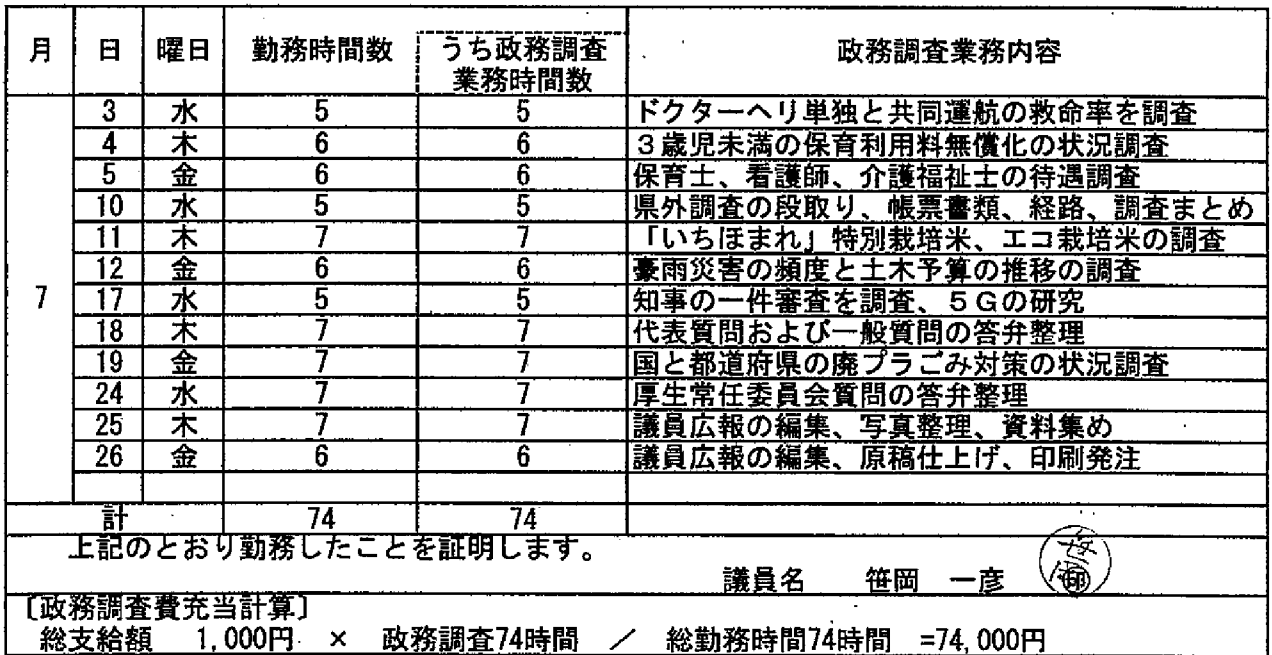 月 日 曜日 勤務時間数 うち政務調査業務時間数 政務調査業務内容
7 3 水 5 5 ドクターヘリ単独と共同運航の救命率を調査
4 木 6 6 3歳児未満の保育利用料無償化の状況調査
5 金 6 6 保育士、看護師、介護福祉士の待遇調査
10 水 5 5 県外調査の段取り、帳票書類、経路、調査まとめ
11 木 7 7 「いちほまれ」特別栽培米、エコ栽培米の調査
12 金 6 6 豪雨災害の頻度と土木予算の推移の調査
17 水 5 5 知事の一件審査を調査、5Gの研究
18 木 7 7 代表質問および一般質問の答弁整理
19 金 7 7 国と都道府県の廃プラごみ対策の状況調査
24 水 7 7 厚生常任委員会質問の答弁整理
25 木 7 7 議員広報の編集、写真整理、資料集め
26 金 6 6 議員広報の編集、原稿仕上げ、印刷発注
計 74 74
上記のとおり勤務したことを証明します。
議員名 笹岡 一彦 印
〔政務調査費充当計算〕
総支給額 1,000円 × 政務調査74時間 / 総勤務時間74時間 =74,000円